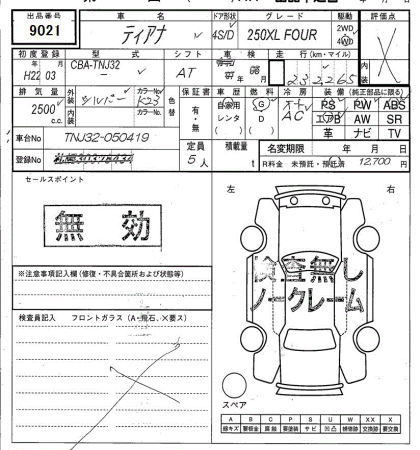 出品番号 車名 ドア形状 グレード 駆動 評価点
9021 ティアナ 4S/D 250XL FOUR 2WD 4WD
初度登録 型式 シフト 車検 走行(km・マイル) 内装
H22年03月 CBA-TNJ32 AT 232,265
排気量 外装色 カラーNo 色替 保証書 車歴 燃料 冷房 装備(純正部品に限る)
2500c.c. シルバー K23 有・無 自家用 G AC PS PW ABS
内装色 カラーNo レンタ D エアB AW SR
革 ナビ TV
車台No TNJ32-050419 定員 積載量 名変期限 年 月 日
登録No 5人 t R料金 未預託・預託済( ) 12,700円
セールスポイント
無効
左 右
※注意事項記入欄(修復・不具合箇所および状態等)
検査無し
ノークレーム
検査員記入 フロントガラス(A・飛石、×要ス)
スペア
A B C P S U W XX X
線キズ 要板金 腐蝕 要塗装 サビ 凹凸 補修跡 交換跡 要交換